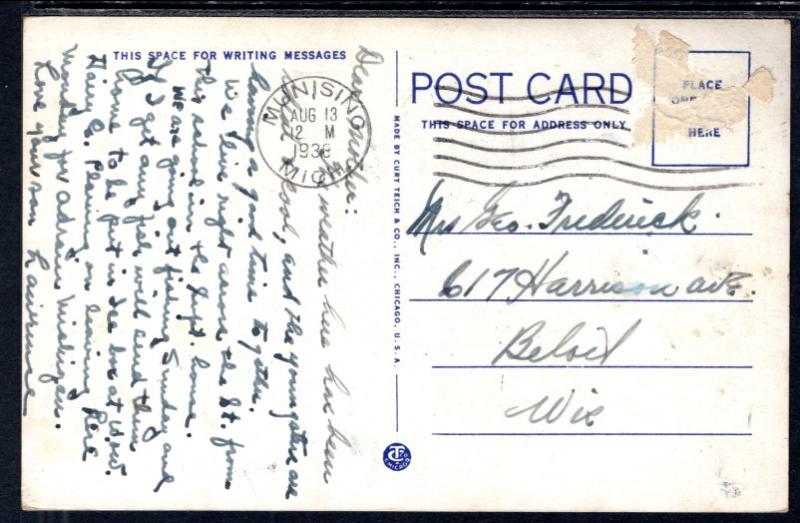 THIS SPACE FOR WRITING MESSAGES
POST CARD
THIS SPACE FOR ADDRESS ONLY
PLACE
ONE
HERE
MUNISING
AUG 13
12 M
1938
MICH
MADE BY CURT TEICH & CO., INC., CHICAGO, U.S.A.
Dear Mother:
weather here has been
cool, and the youngsters are
having a good time together.
We live right across the St. from
this school in the Supt. home.
We are going out fishing Sunday and
if I get any fish will send them
home to be put in ice box at Wow.
Dairy Co. Planing on leaving here
Monday for Adrain Michigan.
Love your son Lawrence
Mrs Geo. Frederick.
617 Harrison ave.
Beloit
Wis
CT
CHICAGO